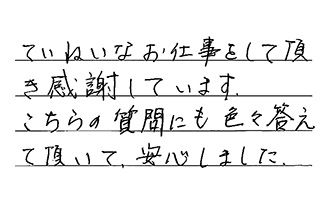 ていねいなお仕事をして頂
き感謝しています.
こちらの質問にも色々答え
て頂いて、安心しました.